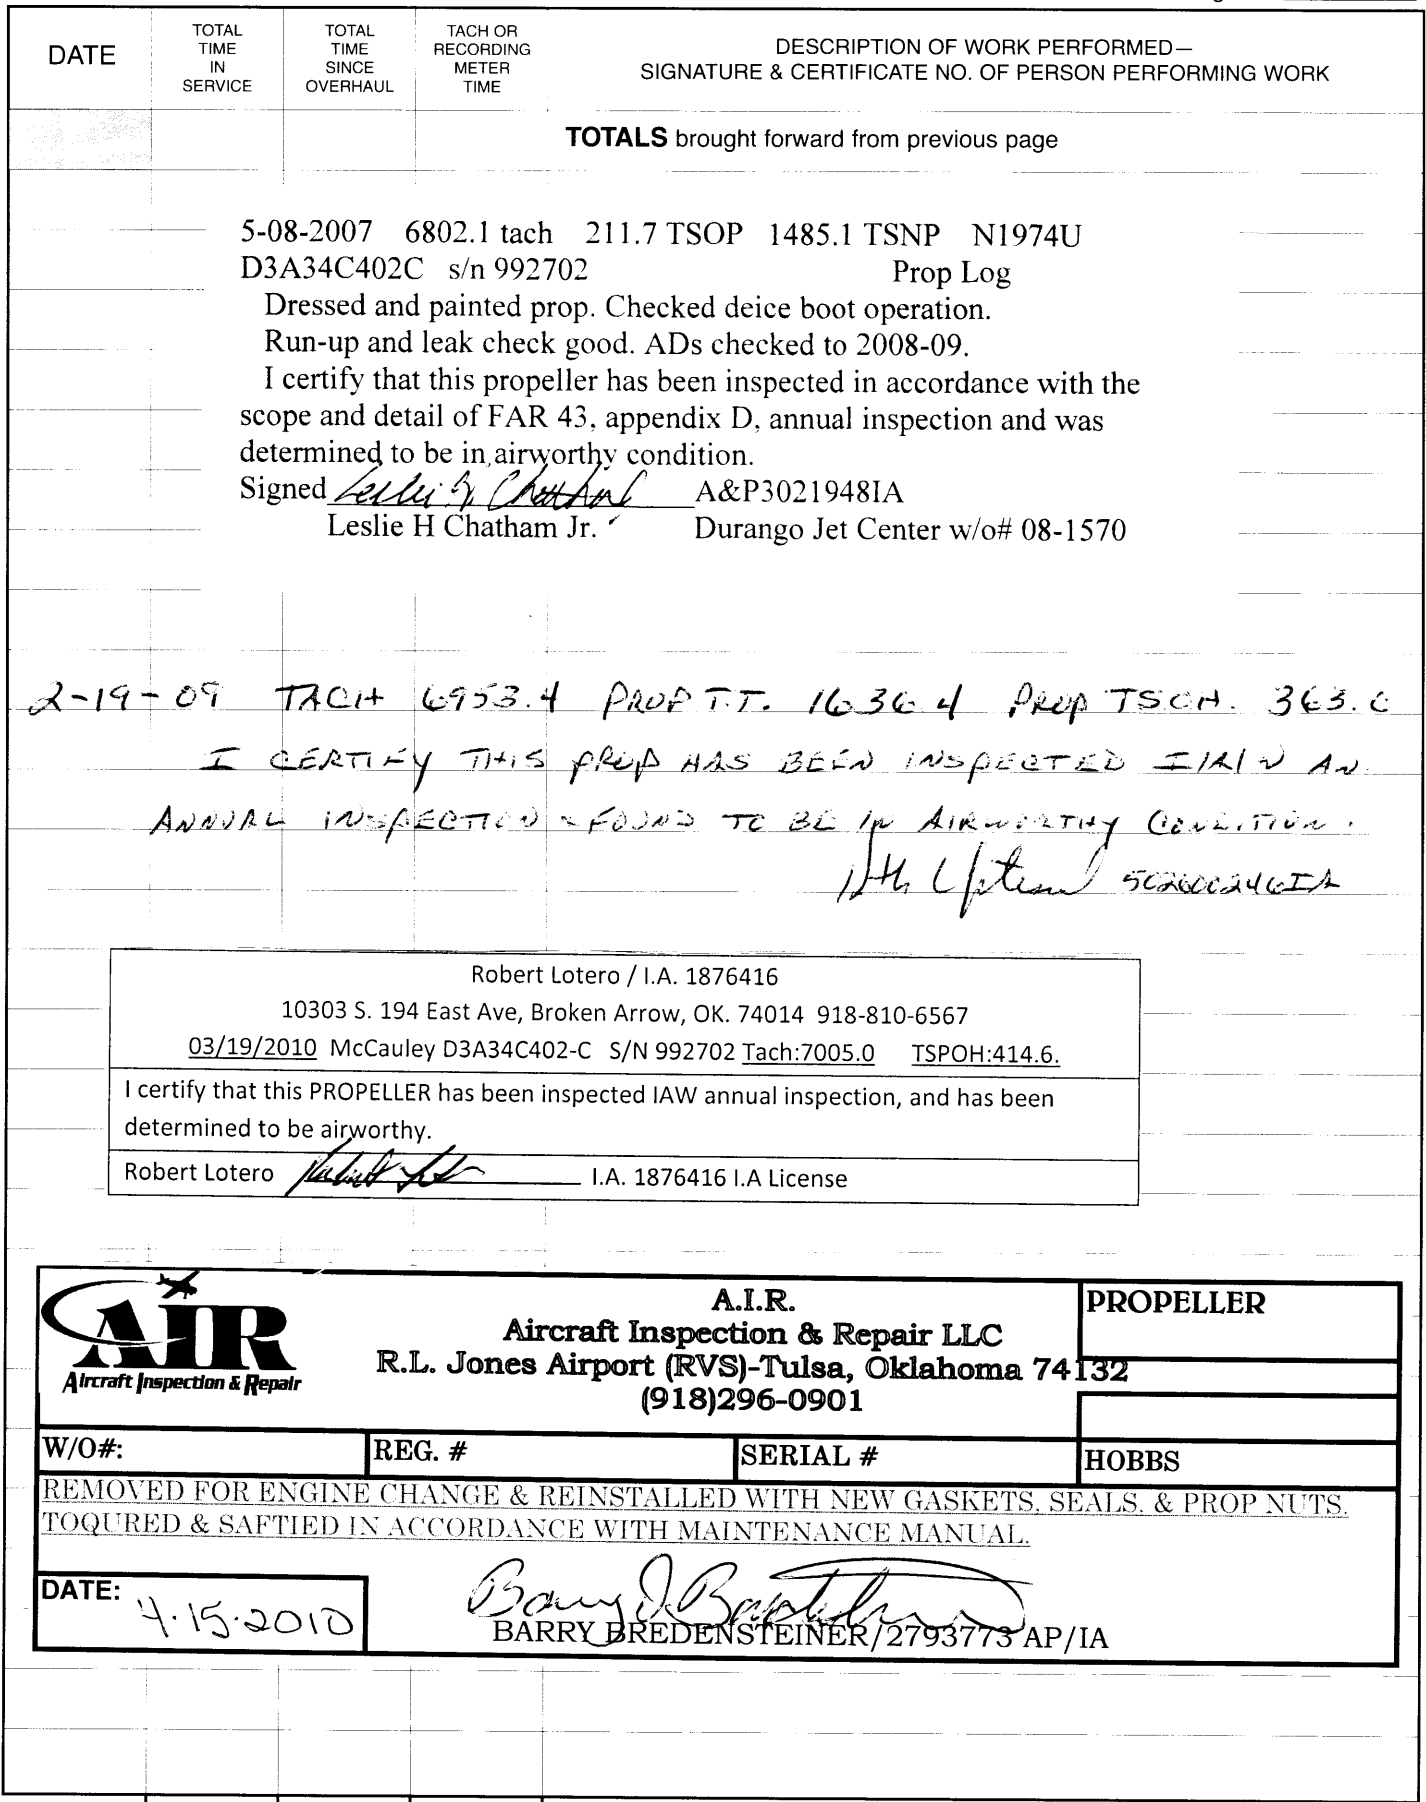 DATE
TOTAL TIME IN SERVICE
TOTAL TIME SINCE OVERHAUL
TACH OR RECORDING METER TIME
DESCRIPTION OF WORK PERFORMED—
SIGNATURE & CERTIFICATE NO. OF PERSON PERFORMING WORK
TOTALS brought forward from previous page
5-08-2007 6802.1 tach 211.7 TSOP 1485.1 TSNP N1974U
D3A34C402C s/n 992702 Prop Log
Dressed and painted prop. Checked deice boot operation.
Run-up and leak check good. ADs checked to 2008-09.
I certify that this propeller has been inspected in accordance with the
scope and detail of FAR 43, appendix D, annual inspection and was
determined to be in airworthy condition.
Signed Leslie H Chatham A&P3021948IA
Leslie H Chatham Jr. Durango Jet Center w/o# 08-1570
2-19-09 TACH 6953.4 PROP T.T. 1636.4 PROP TSOH. 363.0
I CERTIFY THIS PROP HAS BEEN INSPECTED I/A/W AN
ANNUAL INSPECTION & FOUND TO BE IN AIRWORTHY CONDITION.
502600246IA
Robert Lotero / I.A. 1876416
10303 S. 194 East Ave, Broken Arrow, OK. 74014 918-810-6567
03/19/2010 McCauley D3A34C402-C S/N 992702 Tach:7005.0 TSPOH:414.6.
I certify that this PROPELLER has been inspected IAW annual inspection, and has been
determined to be airworthy.
Robert Lotero Robert Lotero I.A. 1876416 I.A License
AIR
Aircraft Inspection & Repair
A.I.R.
Aircraft Inspection & Repair LLC
R.L. Jones Airport (RVS)-Tulsa, Oklahoma 74132
(918)296-0901
PROPELLER
W/O#:
REG. #
SERIAL #
HOBBS
REMOVED FOR ENGINE CHANGE & REINSTALLED WITH NEW GASKETS, SEALS, & PROP NUTS.
TOQURED & SAFTIED IN ACCORDANCE WITH MAINTENANCE MANUAL.
DATE: 4.15.2010
Barry Bredensteiner
BARRY BREDENSTEINER/2793773 AP/IA